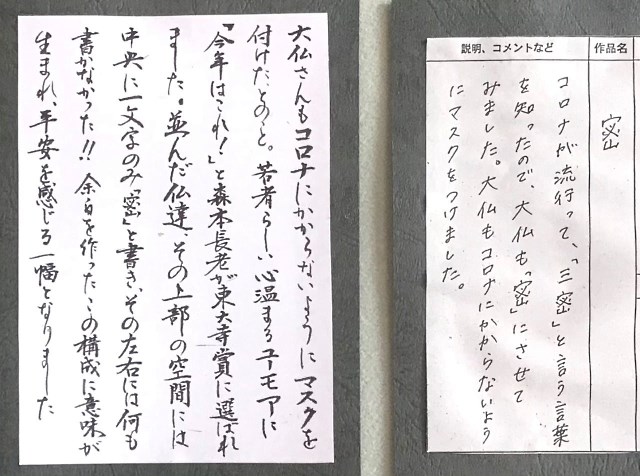 大仏さんもコロナにかからないようにマスクを
付けた、とのこと。若者らしい心温まるユーモアに
「今年はこれ!」と森本長老が東大寺賞に選ばれ
ました。並んだ仏達、その上部の空間には
中央に一文字のみ「密」と書き、その左右には何も
書かなかった!!余白を作ったこの構成に意味が
生まれ、平安を感じる一幅となりました
作品名
密
説明、コメントなど
コロナが流行って、「三密」と言う言葉
を知ったので、大仏も「密」にさせて
みました。大仏もコロナにかからないよう
にマスクをつけました。